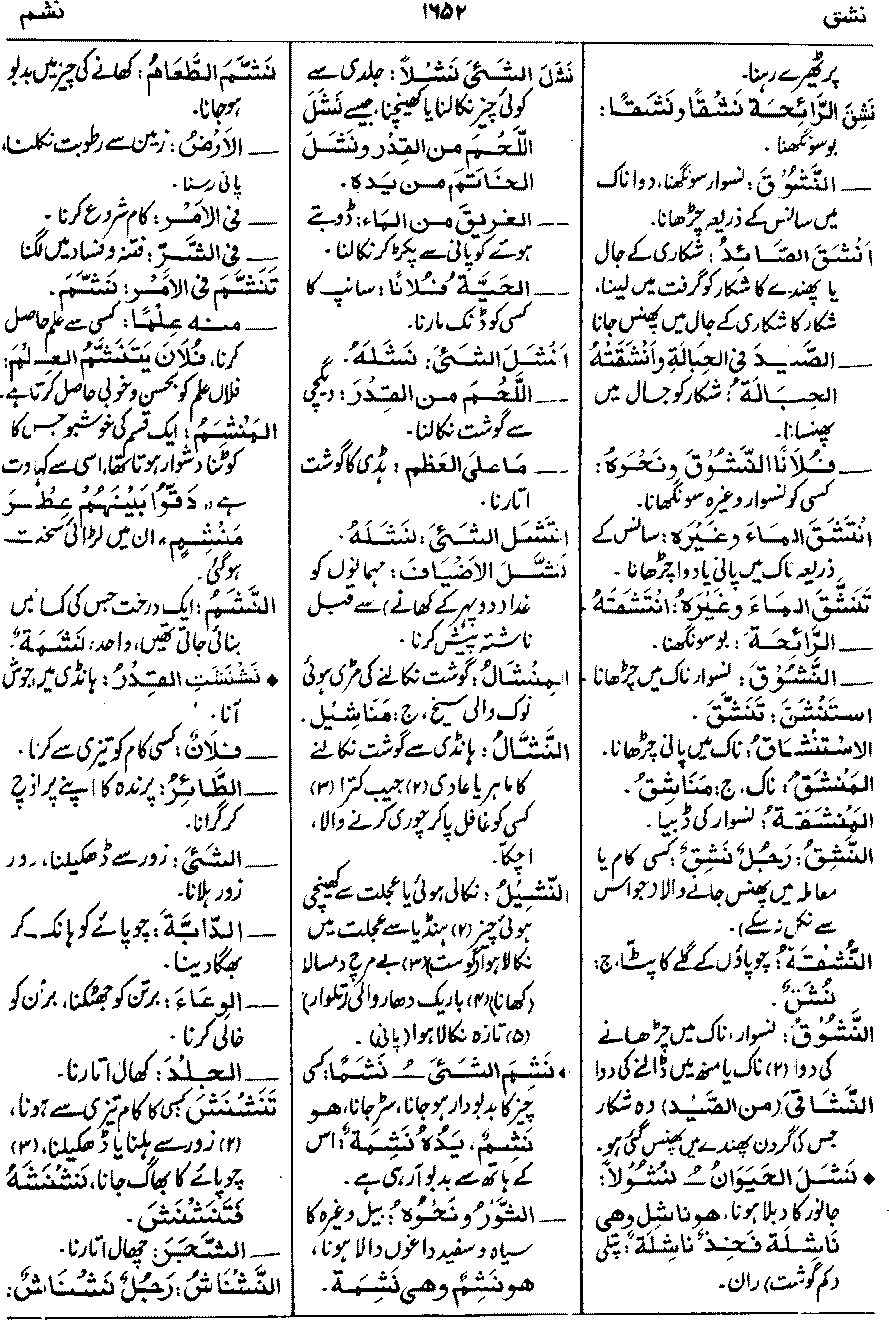 نشق
۱۶۵۲
نشم
پر ٹھیرے رہنا۔
نَشِقَ الرَّائِحَةَ نَشْقًا وَنَشَقًا:
بو سونگھنا۔
__ النَّشُوْقَ: نسوار سونگھنا، دوا ناک
میں سانس کے ذریعہ چڑھانا۔
اَنْشَقَ الصَّائِدُ: شکاری کے جال
یا پھندے کا شکار کو گرفت میں لینا،
شکار کا شکاری کے جال میں پھنس جانا
__ الصَّيْدَ فِى الحِبَالَةِ وَاَنْشَقَتْهُ
الحِبَالَةُ: شکار کو جال میں
پھنسانا۔
__ فُلَانًا النَّشُوْقَ وَنَحْوَهُ:
کسی کو نسوار وغیرہ سونگھانا۔
اِنْتَشَقَ المَاءَ وَغَيْرَهُ: سانس کے
ذریعہ ناک میں پانی یا دوا چڑھانا۔
تَنَشَّقَ المَاءَ وَغَيْرَهُ: اِنْتَشَقَهُ
__ الرَّائِحَةَ: بو سونگھنا۔
__ النَّشُوْقَ: نسوار ناک میں چڑھانا
اِسْتَنْشَقَ: تَنَشَّقَ۔
الاِسْتِنْشَاقُ: ناک میں پانی چڑھانا۔
المَنْشَقُ: ناک، ج: مَنَاشِقُ۔
المِنْشَقَةُ: نسوار کی ڈبیا۔
النَّشِقُ: رَجُلٌ نَشِقٌ: کسی کام یا
معاملہ میں پھنس جانے والا (جو اس
سے نکل نہ سکے)۔
النُّشْقَةُ: چوپاؤں کے گلے کا پٹا، ج:
نُشَقٌ۔
النَّشُوْقُ: نسوار، ناک میں چڑھانے
کی دوا (۲) ناک یا منھ میں ڈالنے کی دوا
النَّشَاقَى (من الصَّيْد) وہ شکار
جس کی گردن پھندے میں پھنس گئی ہو۔
♦ نَشَلَ الحَيَوَانُ ـُ نُشُوْلًا:
جانور کا دبلا ہونا، هو نَاشِل وهى
نَاشِلَة فَخِذٌ نَاشِلَةٌ: پتلی
(کم گوشت) ران۔
نَشَلَ الشَّئَ نَشْلًا: جلدی سے
کوئی چیز نکالنا یا کھینچنا، جیسے نَشَلَ
اللَّحْمَ من القِدْرِ وَنَشَلَ
الخَاتَمَ من يَدِه۔
__ الغَرِيقَ من المَاء: ڈوبتے
ہوئے کو پانی سے پکڑ کر نکالنا۔
__ الحَيَّةُ فُلَانًا: سانپ کا
کسی کو ڈنک مارنا۔
اَنْشَلَ الشَّئَ: نَشَلَهُ۔
__ اللَّحْمَ من القِدْرِ: دیگچی
سے گوشت نکالنا۔
__ مَا على العَظْمِ: ہڈی کا گوشت
اتارنا۔
اِنْتَشَلَ الشَّئَ: نَشَلَهُ۔
نَشَّلَ الاَضْيَافَ: مہمانوں کو
غدا (دوپہر کے کھانے) سے قبل
ناشتہ پیش کرنا۔
المِنْشَالُ: گوشت نکالنے کی مڑی ہوئی
نوک والی سیخ، ج: مَنَاشِيْل۔
النَّشَّالُ: ہانڈی سے گوشت نکالنے
کا ماہر یا عادی (۲) جیب کترا (۳)
کسی کو غافل پاکر چوری کرنے والا،
اچکّا۔
النَّشِيْلُ: نکالی ہوئی یا عجلت سے کھینچی
ہوئی چیز (۲) ہنڈیا سے عجلت میں
نکالا ہوا (گوشت) (۳) بے مرچ و مسالا
(کھانا) (۴) باریک دھار والی (تلوار)
(۵) تازہ نکالا ہوا (پانی)۔
♦ نَشِمَ الشَّئُ ـَ نَشَمًا: کسی
چیز کا بدبو دار ہو جانا، سڑ جانا، هو
نَشِمٌ، يَدُهُ نَشِمَةٌ: اس
کے ہاتھ سے بدبو آرہی ہے۔
__ الثَّوْرُ وَنَحْوُهُ: بیل وغیرہ کا
سیاہ و سفید داغوں والا ہونا،
هو نَشِمٌ وهى نَشِمَة۔
نَشَّمَ الطَّعَامُ: کھانے کی چیز میں بدبو
ہو جانا۔
__ الاَرْضُ: زمین سے رطوبت نکلنا،
پانی رسنا۔
__ فِى الاَمْرِ: کام شروع کرنا۔
__ فِى الشَّرِّ: فتنہ و فساد میں لگنا
تَنَشَّمَ فِى الاَمْرِ: نَشَّمَ۔
__ منه عِلْمًا: کسی سے علم حاصل
کرنا، فُلَان يَتَنَشَّمُ العِلْمَ:
فلاں علم کو بحسن و خوبی حاصل کرتا ہے۔
المَنْشَمُ: ایک قسم کی خوشبو جس کا
کوٹنا دشوار ہوتا تھا، اسی سے کہاوت
ہے: دَقُّوا بَيْنَهُمْ عِطْرَ
مَنْشِمٍ، ان میں لڑائی سخت
ہو گئی۔
النَّشَمُ: ایک درخت جس کی کمانیں
بنائی جاتی تھیں، واحد: نَشَمَةٌ
♦ نَشْنَشَتِ القِدْرُ: ہانڈی میں جوش
آنا۔
__ فُلَانٌ: کسی کام کو تیزی سے کرنا۔
__ الطَّائِرُ: پرندہ کا اپنے پر نوچ
کر گرانا۔
__ الشَّئَ: زور سے ڈھکیلنا، زور
زور ہلانا۔
__ الدَّابَّةَ: چوپائے کو ہانک کر
بھگا دینا۔
__ الوِعَاءَ: برتن کو جھٹکنا، برتن کو
خالی کرنا۔
__ الجِلْدَ: کھال اتارنا۔
تَنَشْنَشَ کسی کا کام تیزی سے ہونا،
(۲) زور سے ہلنا یا ڈھکیلنا، (۳)
چوپائے کا بھاگ جانا، نَشْنَشَهُ
فَتَنَشْنَشَ۔
__ الشَّجَرَ: چھال اتارنا۔
النَّشْنَاشُ: رَجُلٌ نَشْنَاشٌ: